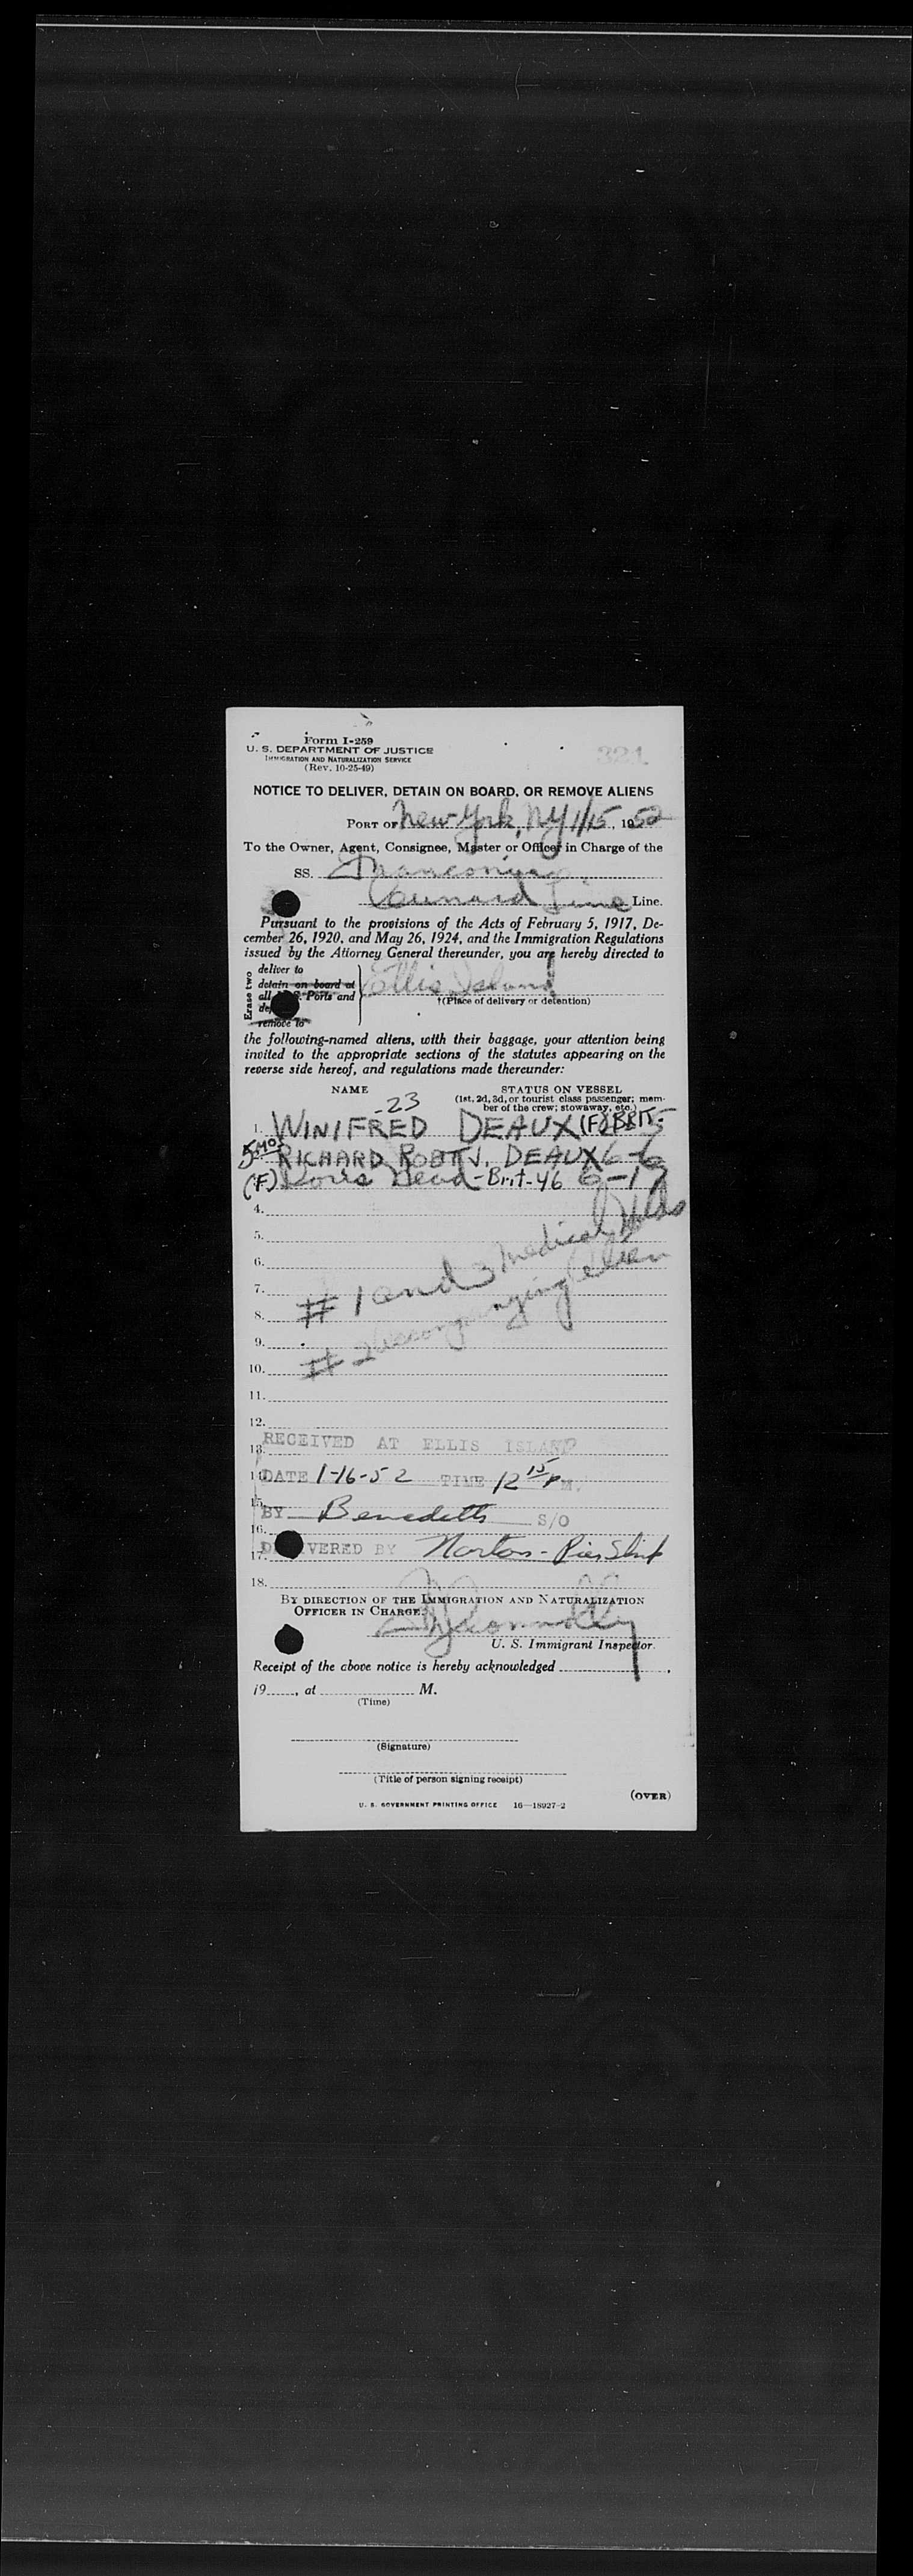 Form I-259
U. S. DEPARTMENT OF JUSTICE
IMMIGRATION AND NATURALIZATION SERVICE
(Rev. 10-25-49)
321
NOTICE TO DELIVER, DETAIN ON BOARD, OR REMOVE ALIENS
PORT OF New York, NY 1/15, 1952
To the Owner, Agent, Consignee, Master or Officer in Charge of the
SS. Franconia
Cunard Line Line.
Pursuant to the provisions of the Acts of February 5, 1917, De-
cember 26, 1920, and May 26, 1924, and the Immigration Regulations
issued by the Attorney General thereunder, you are hereby directed to
Erase two
deliver to
detain on board at
all U. S. Ports and
remove to
Ellis Island
†(Place of delivery or detention)
the following-named aliens, with their baggage, your attention being
invited to the appropriate sections of the statutes appearing on the
reverse side hereof, and regulations made thereunder:
NAME
STATUS ON VESSEL
(1st, 2d, 3d, or tourist class passenger; mem-
ber of the crew; stowaway, etc.)
-23
1. WINIFRED DEAUX (F) BRIT
5 MO RICHARD ROBT J. DEAUX 6-6
(F) Doris Head - Brit-46 6-17
4.
5.
6.
7.
8.
9.
10.
11.
12.
# 1 and 3 Medical Holds
# 2 accompanying alien
13. RECEIVED AT ELLIS ISLAND
14. DATE 1-16-52 TIME 12 15 P M.
15.
BY Benedetto S/O
16.
17. DELIVERED BY Norton - Pier
18.
BY DIRECTION OF THE IMMIGRATION AND NATURALIZATION
OFFICER IN CHARGE:
U. S. Immigrant Inspector.
Receipt of the above notice is hereby acknowledged
19 , at M.
(Time)
(Signature)
(Title of person signing receipt)
(OVER)
U. S. GOVERNMENT PRINTING OFFICE 16—18927-2